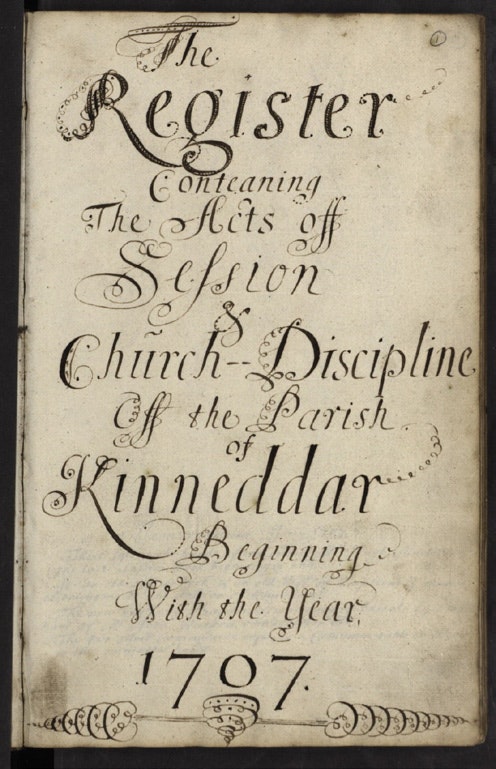 1
The
Register
Conteaning
The Acts off
Seſsion
&
Chŭrch--Discipline
Off the Parish
of
Kinneddar
Beginning
With the Year
1707.